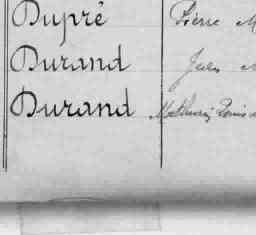 Dupré Pierre M
Durand Jules
Durand Mathurin Louis